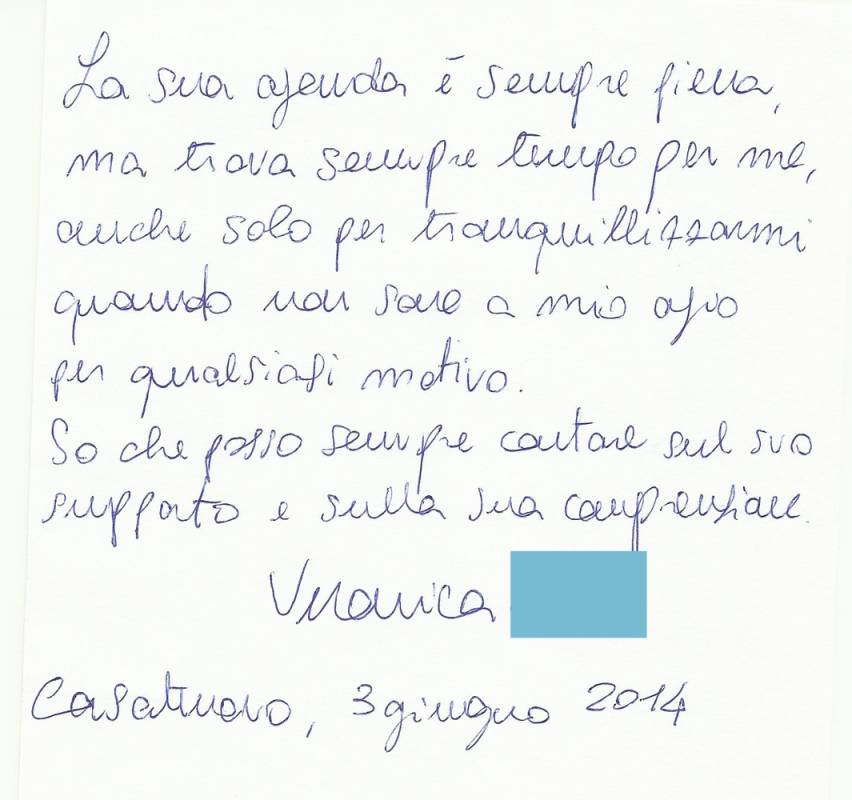 La sua agenda è sempre piena,
ma trova sempre tempo per me,
anche solo per tranquillizzarmi
quando non sono a mio agio
per qualsiasi motivo.
So che posso sempre contare sul suo
supporto e sulla sua comprensione.
Veronica
Casatenovo, 3 giugno 2014